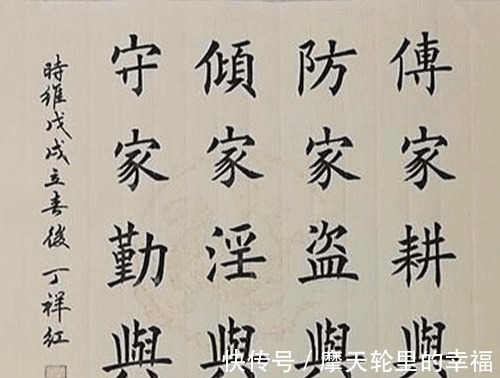 傳家耕與
防家盗與
傾家淫與
守家勤與
時維戊戌立春後丁祥红
快传号/摩天轮里的幸福